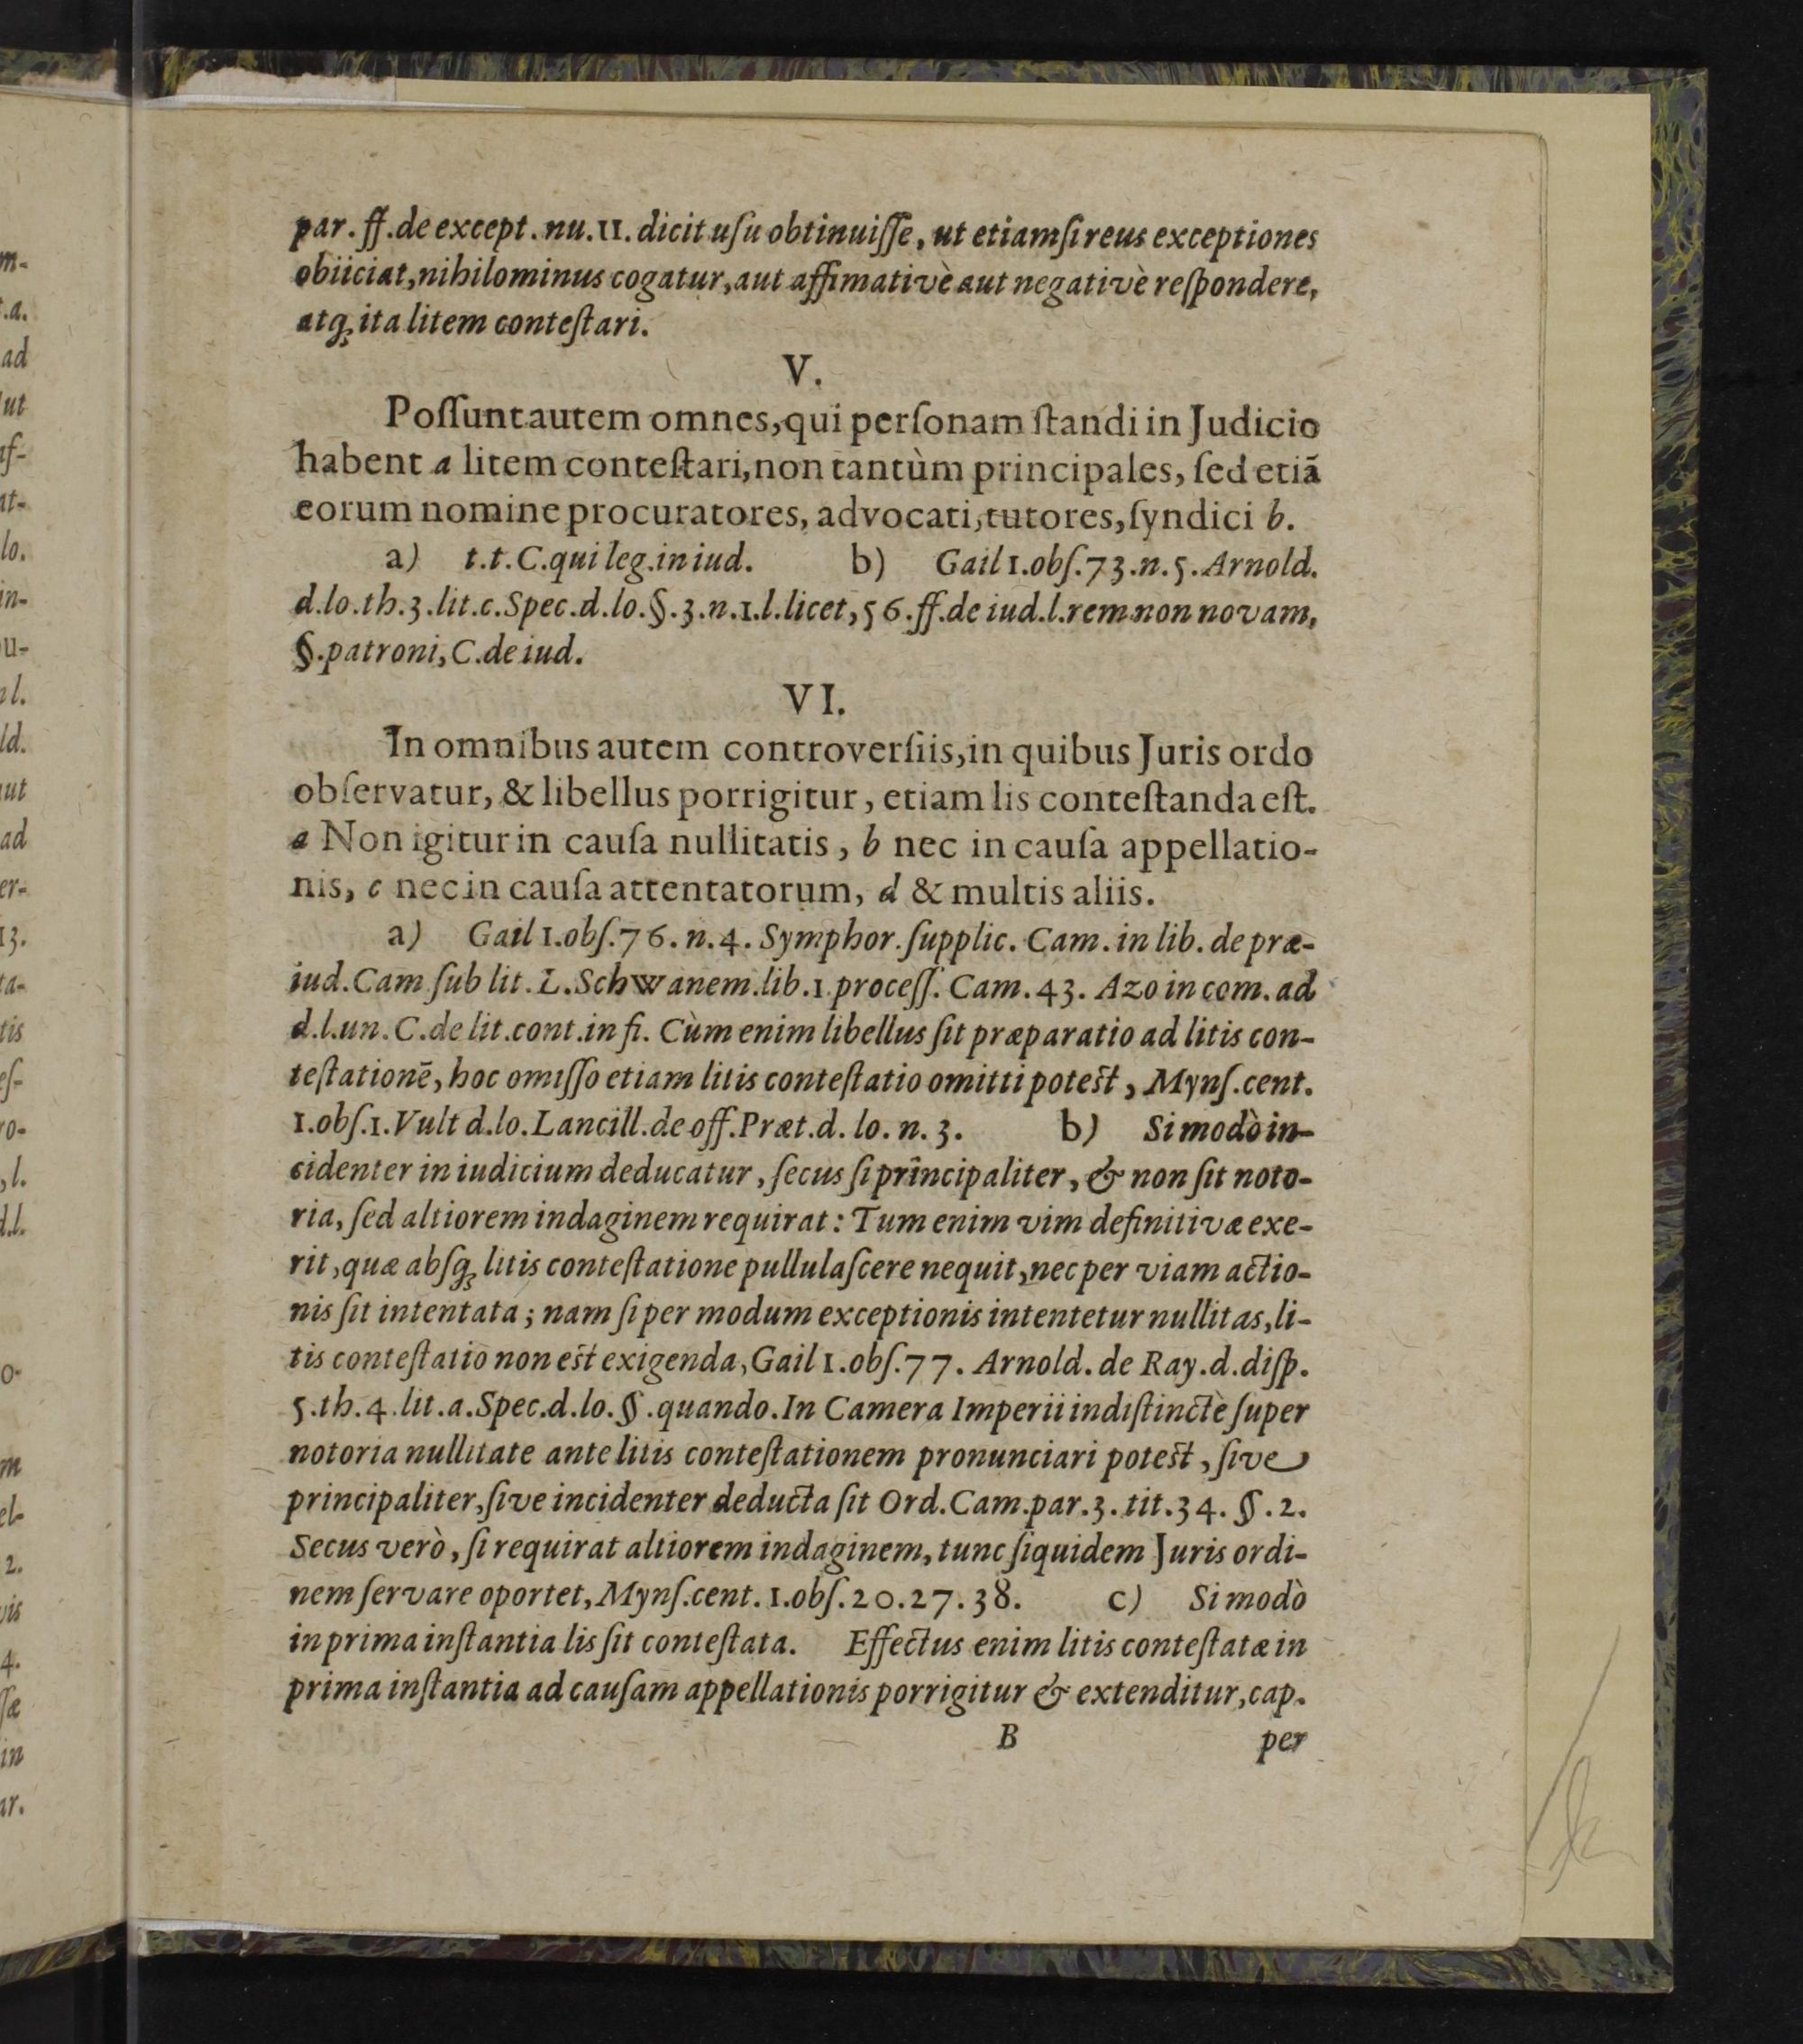 par. ff. de except. nu. 11. dicit uſu obtinuiſſe, ut etiamſi reus exceptiones
obiiciat, nihilominus cogatur, aut affimativè aut negativè reſpondere,
atq; ita litem conteſtari.
V.
Poſſunt autem omnes, qui perſonam ſtandi in Judicio
habent a litem conteſtari, non tantùm principales, ſed etiã
eorum nomine procuratores, advocati, tutores, ſyndici b.
a) t.t. C. qui leg. in iud. b) Gail 1. obſ. 73. n. 5. Arnold.
d. lo. th. 3. lit. c. Spec. d. lo. §. 3. n. 1. l. licet, 56. ff. de iud. l. rem non novam,
§. patroni, C. de iud.
VI.
In omnibus autem controverſiis, in quibus Juris ordo
obſervatur, & libellus porrigitur, etiam lis conteſtanda eſt.
a Non igitur in cauſa nullitatis, b nec in cauſa appellatio-
nis, c nec in cauſa attentatorum, d & multis aliis.
a) Gail 1. obſ. 76. n. 4. Symphor. ſupplic. Cam. in lib. de præ-
iud. Cam ſub lit. L. Schwanem. lib. 1 proceſſ. Cam. 43. Azo in com. ad
d. l. un. C. de lit. cont. in fi. Cùm enim libellus ſit præparatio ad litis con-
teſtationē, hoc omiſſo etiam litis conteſtatio omitti poteſt, Mynſ. cent.
1. obſ. 1. Vult d. lo. Lancill. de off. Præt. d. lo. n. 3. b) Si modò in-
cidenter in iudicium deducatur, ſecus ſi principaliter, & non ſit noto-
ria, ſed altiorem indaginem requirat: Tum enim vim definitivæ exe-
rit, quæ abſq; litis conteſtatione pullulaſcere nequit, nec per viam actio-
nis ſit intentata; nam ſi per modum exceptionis intentetur nullitas, li-
tis conteſtatio non eſt exigenda, Gail 1. obſ. 77. Arnold. de Ray. d. diſp.
5. th. 4. lit. a. Spec. d. lo. §. quando. In Camera Imperii indiſtinctè ſuper
notoria nullitate ante litis conteſtationem pronunciari poteſt, ſive
principaliter, ſive incidenter deducta ſit Ord. Cam. par. 3. tit. 34. §. 2.
Secus verò, ſi requirat altiorem indaginem, tunc ſiquidem Juris ordi-
nem ſervare oportet, Mynſ. cent. 1. obſ. 20. 27. 38. c) Si modò
in prima inſtantia lis ſit conteſtata. Effectus enim litis conteſtatæ in
prima inſtantia ad cauſam appellationis porrigitur & extenditur, cap.
B per